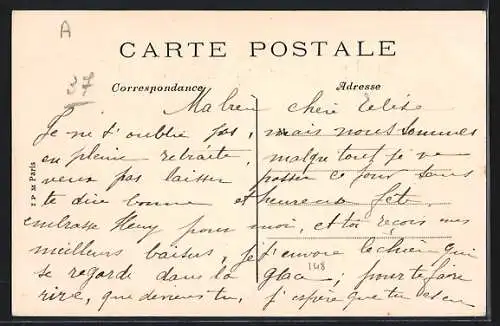 A
CARTE POSTALE
37
Correspondance
Adresse
Ma bien chère Elise
Je ne t'oublie pas, mais nous sommes
en pleine retraite, malgré tout je ne
veux pas laisser passer ce jour sans
te dire bonne et heureuse fête.
embrasse Henry pour moi, et toi reçois mes
meilleurs baisers, je t'envoie le chien qui
se regarde dans la glace; pour te faire
rire, que deviens tu, j'espère que tu es en
148
I P M Paris